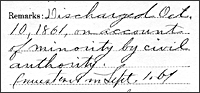 Remarks: Discharged Oct.
10, 1861, on account
of minority by civil
authority.
in Sept. 1.61